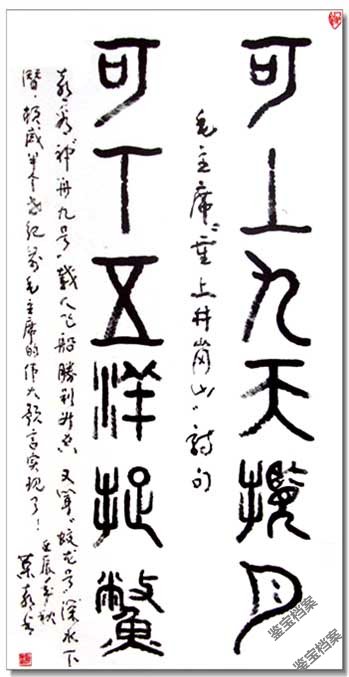 可上九天攬月
毛主席“重上井岗山”詩句
可下五洋捉鱉
喜看“神舟九号”载人飞船勝利升空 又闻“蛟龙号”深水下
潜，顿感半个世纪前毛主席的伟大预言实现了！
壬辰年秋
鉴宝档案
鉴宝档案